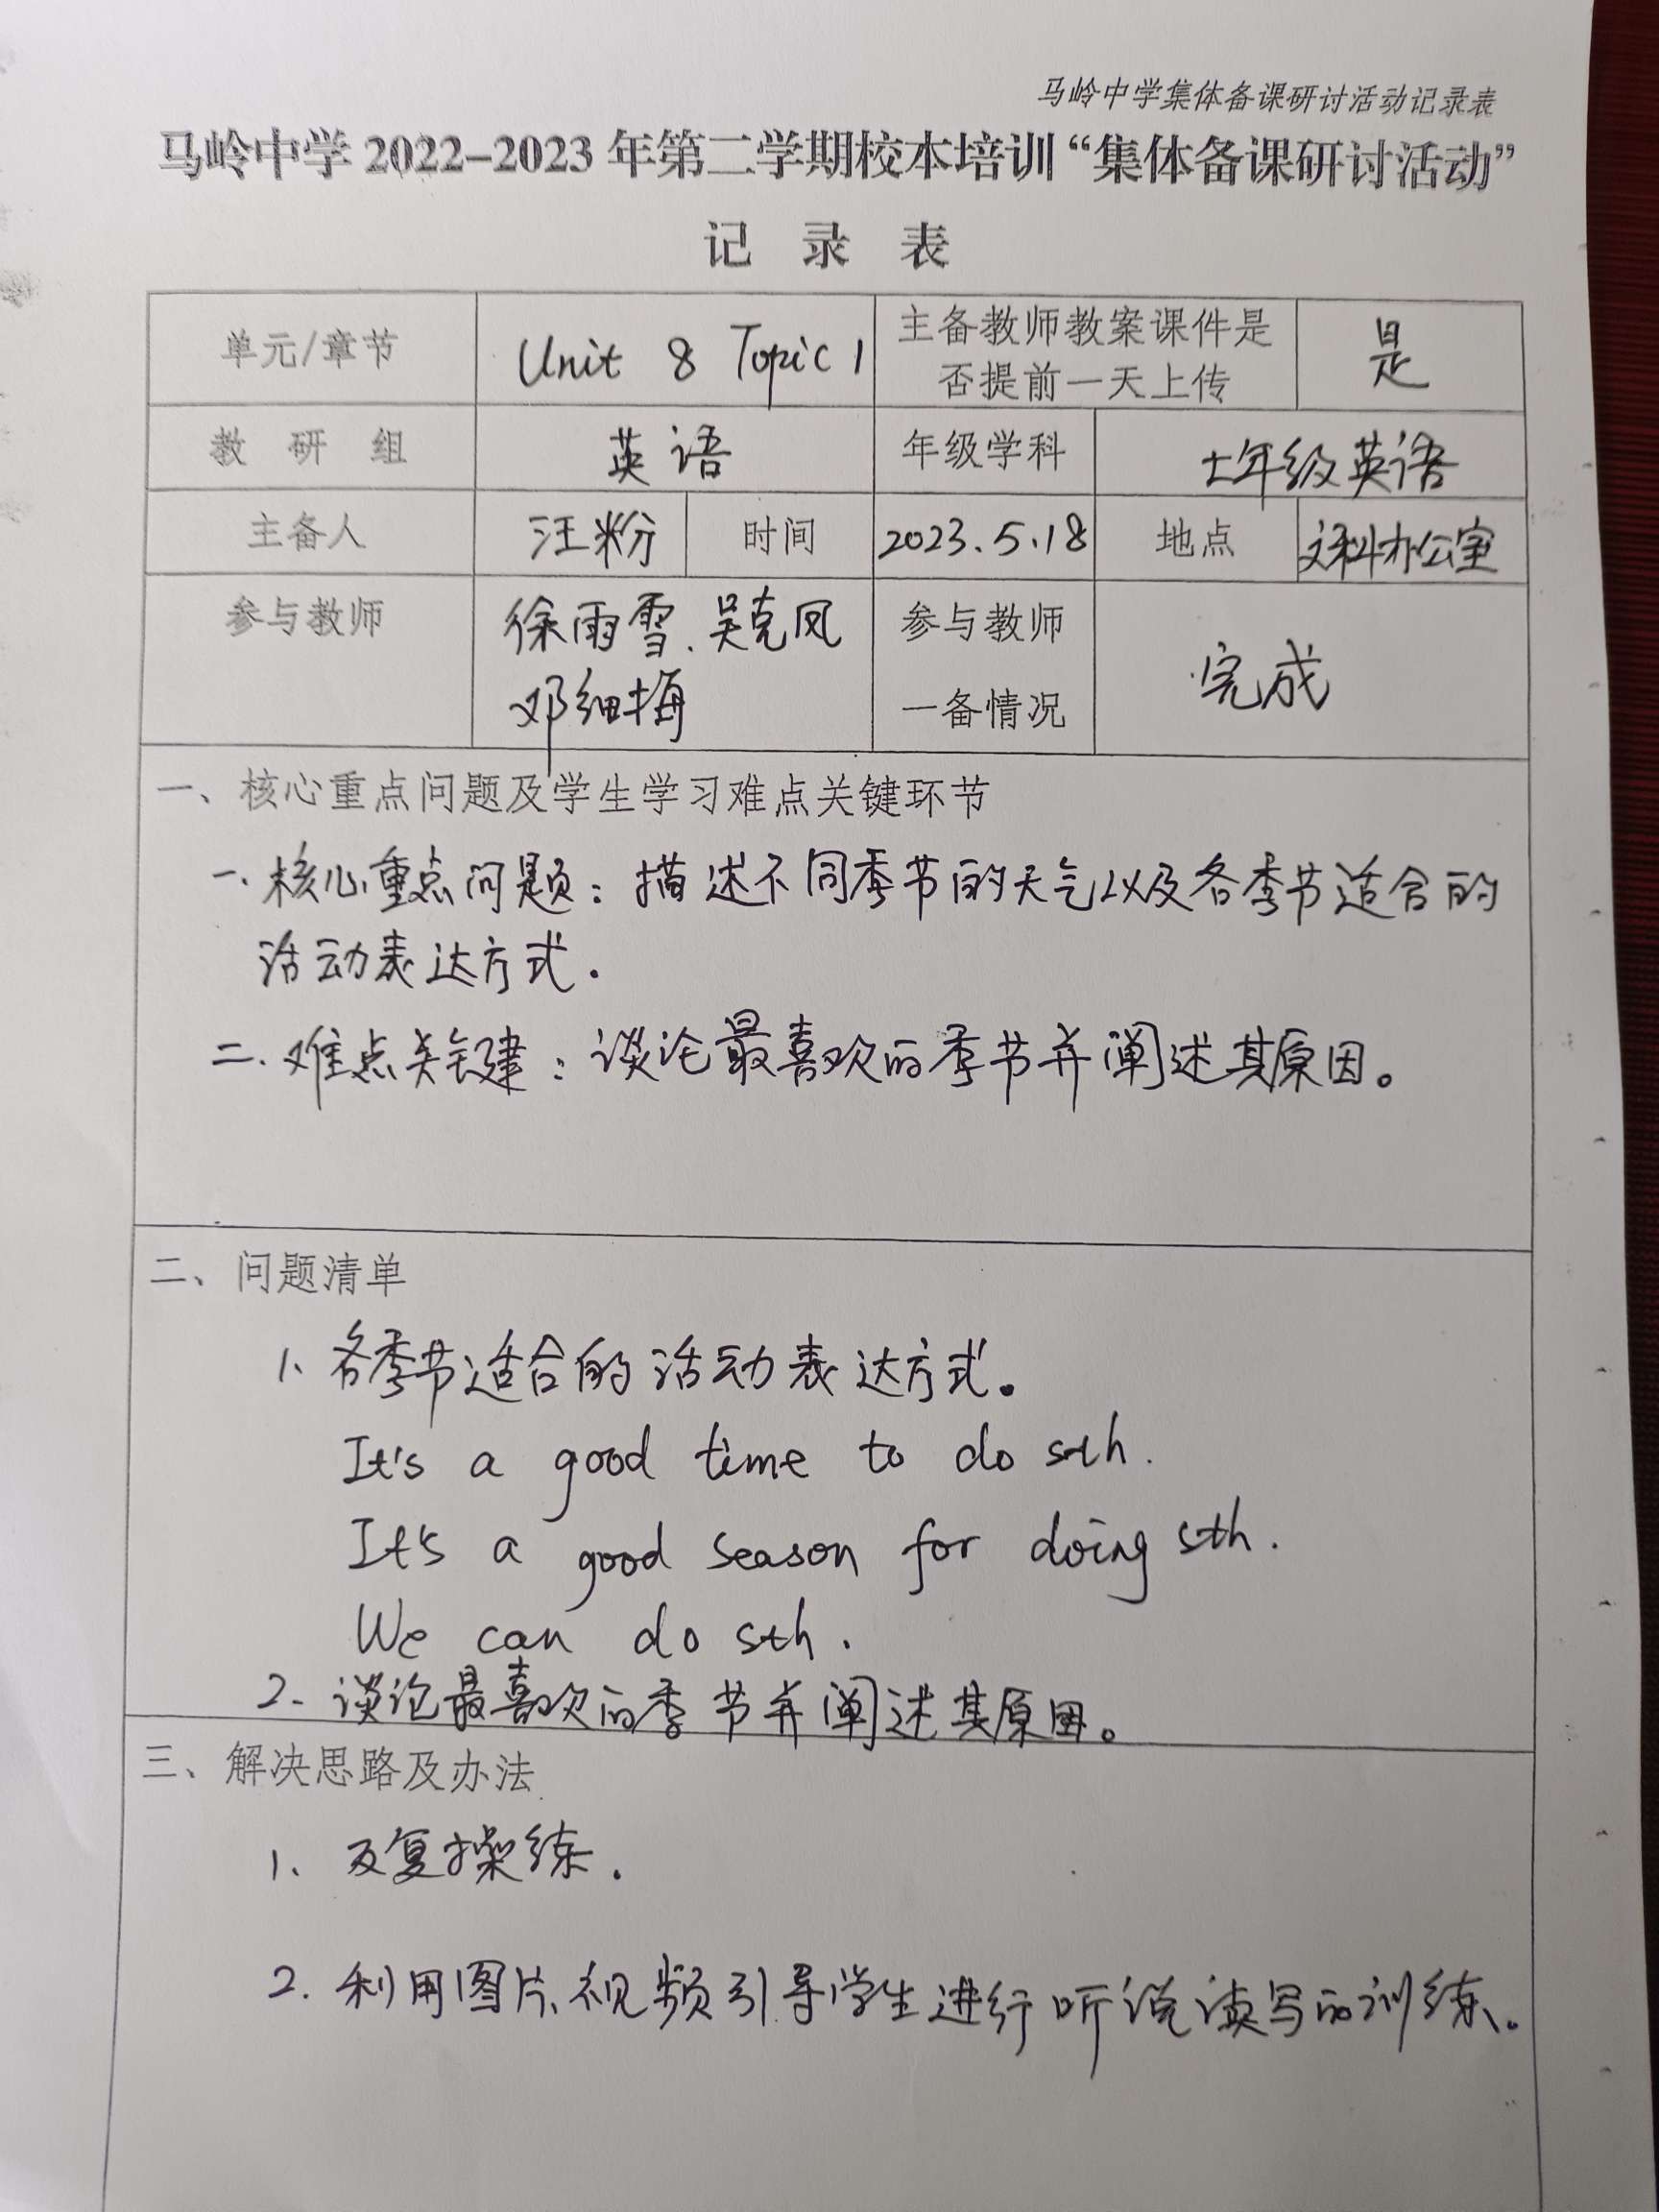 马岭中学集体备课研讨活动记录表
马岭中学 2022-2023 年第二学期校本培训“集体备课研讨活动”
记 录 表
单元/章节 Unit 8 Topic 1 主备教师教案课件是否提前一天上传 是
教 研 组 英语 年级学科 七年级英语
主备人 汪粉 时间 2023.5.18 地点 文科办公室
参与教师 徐雨雪、吴克凤 参与教师
邓细梅 一备情况 完成
一、核心重点问题及学生学习难点关键环节
一、核心重点问题：描述不同季节的天气以及各季节适合的
活动表达方式.
二、难点关键：谈论最喜欢的季节并阐述其原因。
二、问题清单
1、各季节适合的活动表达方式。
It's a good time to do sth.
It's a good season for doing sth.
We can do sth.
2、谈论最喜欢的季节并阐述其原因。
三、解决思路及办法
1、反复操练.
2、利用图片、视频引导学生进行听说读写的训练。